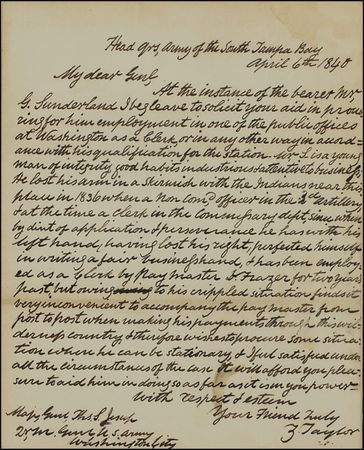 Head Qrs, Army of the South Tampa Bay
April 6th 1840
My dear Genl,
At the instance of the bearer Mr
G. Sunderland I beg leave to solicit your aid in procu
ring for him employment in one of the public offices
at Washington as a Clerk, or in any other way in accord-
ance with his qualification for the Station. Mr S. is a young
man of integrity, good habits industrious & attentive to business,
He lost his arm in a Skirmish with the Indians near this
place in 1836 when a non Comd officer in the 2d Artillery
& at the time a clerk in the Commissary dept. Since when
by dint of application & perseverance he has with his
left hand, having lost his right, perfected himself
in writing a fair business hand, & has been employ
ed as a Clerk by Pay Master D. Frazer for two years
past, but owing to his crippled situation finds it
very inconvenient to accompany the pay master from
post to post when making his payments through this wil
derness country & therefore wishes to procure some situa
tion when he can be stationary & I feel satisfied under
all the circumstances of the case it will afford you plea-
sure to aid him in doing so as far as it is in your power-
With respect & esteem
Your Friend truly
Z Taylor
Maj. Genl Ths S. Jesup
Qr M. Genl U. S. Army
Washington City